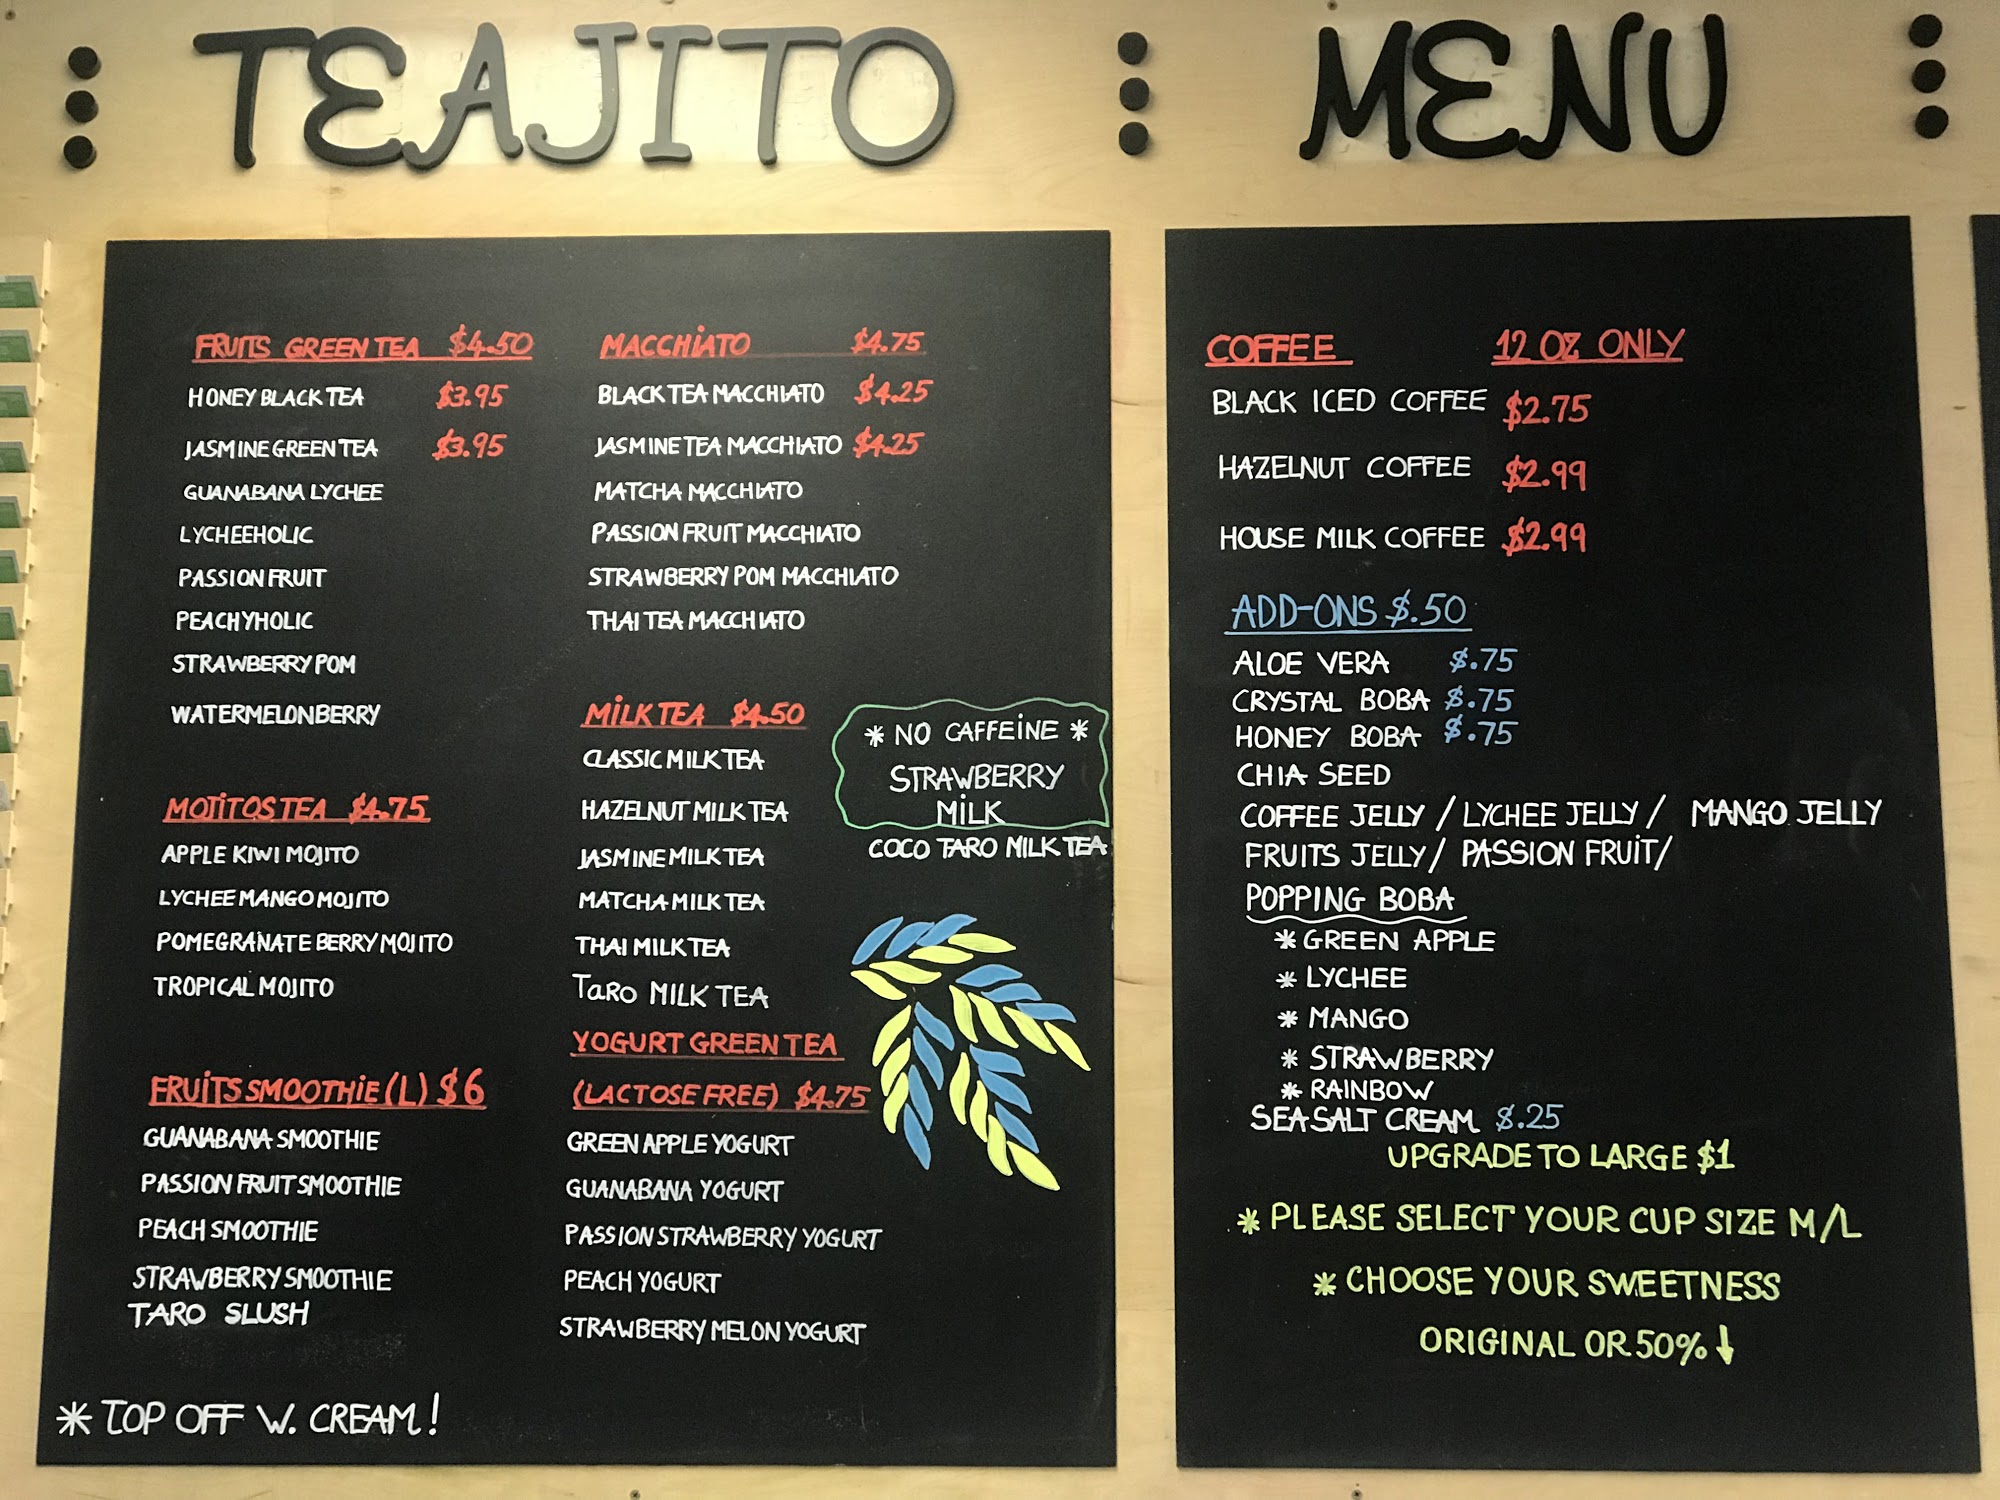 TEAJITO MENU
FRUITS GREEN TEA $4.50
HONEY BLACK TEA $3.95
JASMINE GREEN TEA $3.95
GUANABANA LYCHEE
LYCHEEHOLIC
PASSION FRUIT
PEACHYHOLIC
STRAWBERRY POM
WATERMELONBERRY
MOJITOS TEA $4.75
APPLE KIWI MOJITO
LYCHEE MANGO MOJITO
POMEGRANATE BERRY MOJITO
TROPICAL MOJITO
FRUITS SMOOTHIE (L) $6
GUANABANA SMOOTHIE
PASSION FRUIT SMOOTHIE
PEACH SMOOTHIE
STRAWBERRY SMOOTHIE
TARO SLUSH
* TOP OFF W. CREAM!
MACCHIATO $4.75
BLACK TEA MACCHIATO $4.25
JASMINE TEA MACCHIATO $4.25
MATCHA MACCHIATO
PASSION FRUIT MACCHIATO
STRAWBERRY POM MACCHIATO
THAI TEA MACCHIATO
MILK TEA $4.50
CLASSIC MILK TEA
HAZELNUT MILK TEA
JASMINE MILK TEA
MATCHA MILK TEA
THAI MILK TEA
TaRO MILK TEA
* NO CAFFEINE *
STRAWBERRY
MILK
COCO TARO MILK TEA
YOGURT GREEN TEA
(LACTOSE FREE) $4.75
GREEN APPLE YOGURT
GUANABANA YOGURT
PASSION STRAWBERRY YOGURT
PEACH YOGURT
STRAWBERRY MELON YOGURT
COFFEE 12 OZ ONLY
BLACK ICED COFFEE $2.75
HAZELNUT COFFEE $2.99
HOUSE MILK COFFEE $2.99
ADD-ONS $.50
ALOE VERA $.75
CRYSTAL BOBA $.75
HONEY BOBA $.75
CHIA SEED
COFFEE JELLY / LYCHEE JELLY / MANGO JELLY
FRUITS JELLY / PASSION FRUIT/
POPPING BOBA
* GREEN APPLE
* LYCHEE
* MANGO
* STRAWBERRY
* RAINBOW
SEASALT CREAM $.25
UPGRADE TO LARGE $1
* PLEASE SELECT YOUR CUP SIZE M/L
* CHOOSE YOUR SWEETNESS
ORIGINAL OR 50% ↓